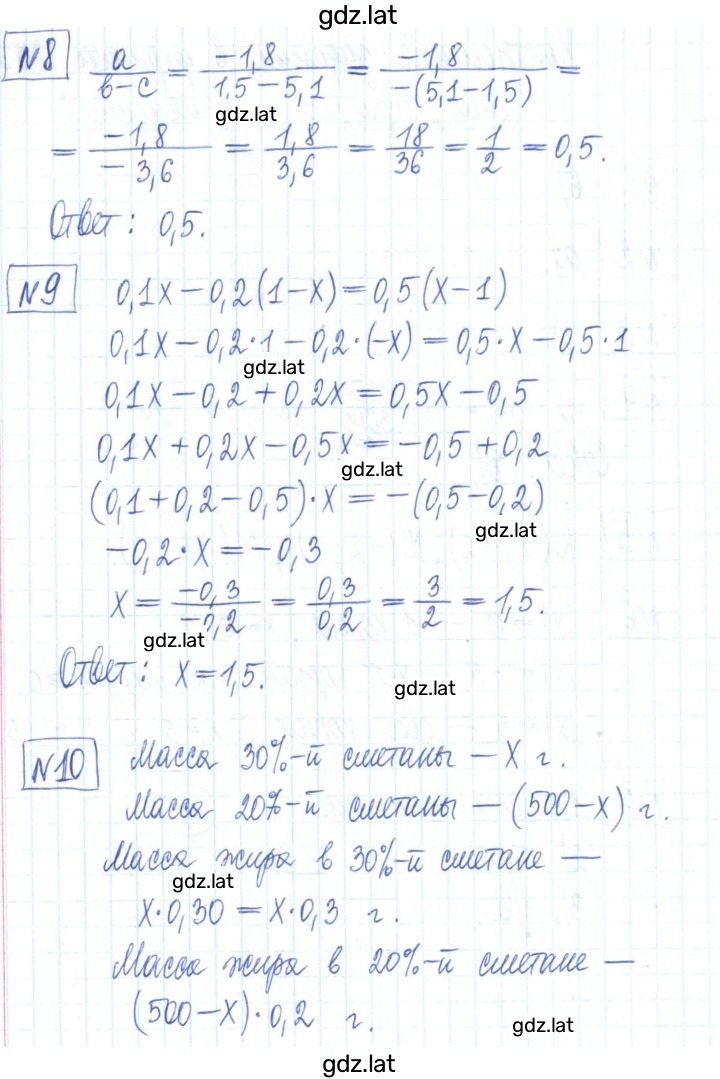 gdz.lat
№8 a/(в−с) = −1,8/(1.5−5,1) = −1,8/(−(5,1−1,5)) =
gdz.lat
= −1,8/(−3,6) = 1,8/3,6 = 18/36 = 1/2 = 0,5.
Ответ: 0,5.
№9 0,1x−0,2(1−x)=0,5(x−1)
0,1x−0,2·1−0,2·(−x)=0,5·x−0,5·1
gdz.lat
0,1x−0,2+0,2x=0,5x−0,5
0,1x+0,2x−0,5x=−0,5+0,2
gdz.lat
(0,1+0,2−0,5)·x=−(0,5−0,2)
gdz.lat
−0,2·x=−0,3
x= −0,3/(−0,2) = 0,3/0,2 = 3/2 =1,5.
gdz.lat
Ответ: x=1,5.
gdz.lat
№10 Масса 30%-й сметаны — x г.
Масса 20%-й сметаны — (500−x) г.
Масса жира в 30%-й сметане —
gdz.lat
x·0,30=x·0,3 г.
Масса жира в 20%-й сметане —
(500−x)·0,2 г.
gdz.lat
gdz.lat